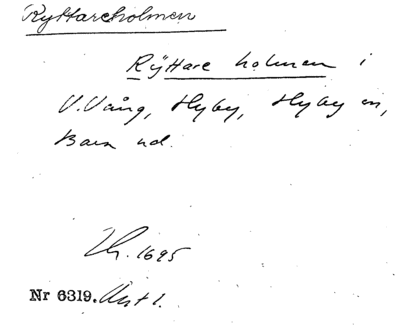 Ryttareholmen
Rÿttare holmen i
V. Vång, Hyby, Hyby sn,
Bara hd.
1695
Nr 6319.